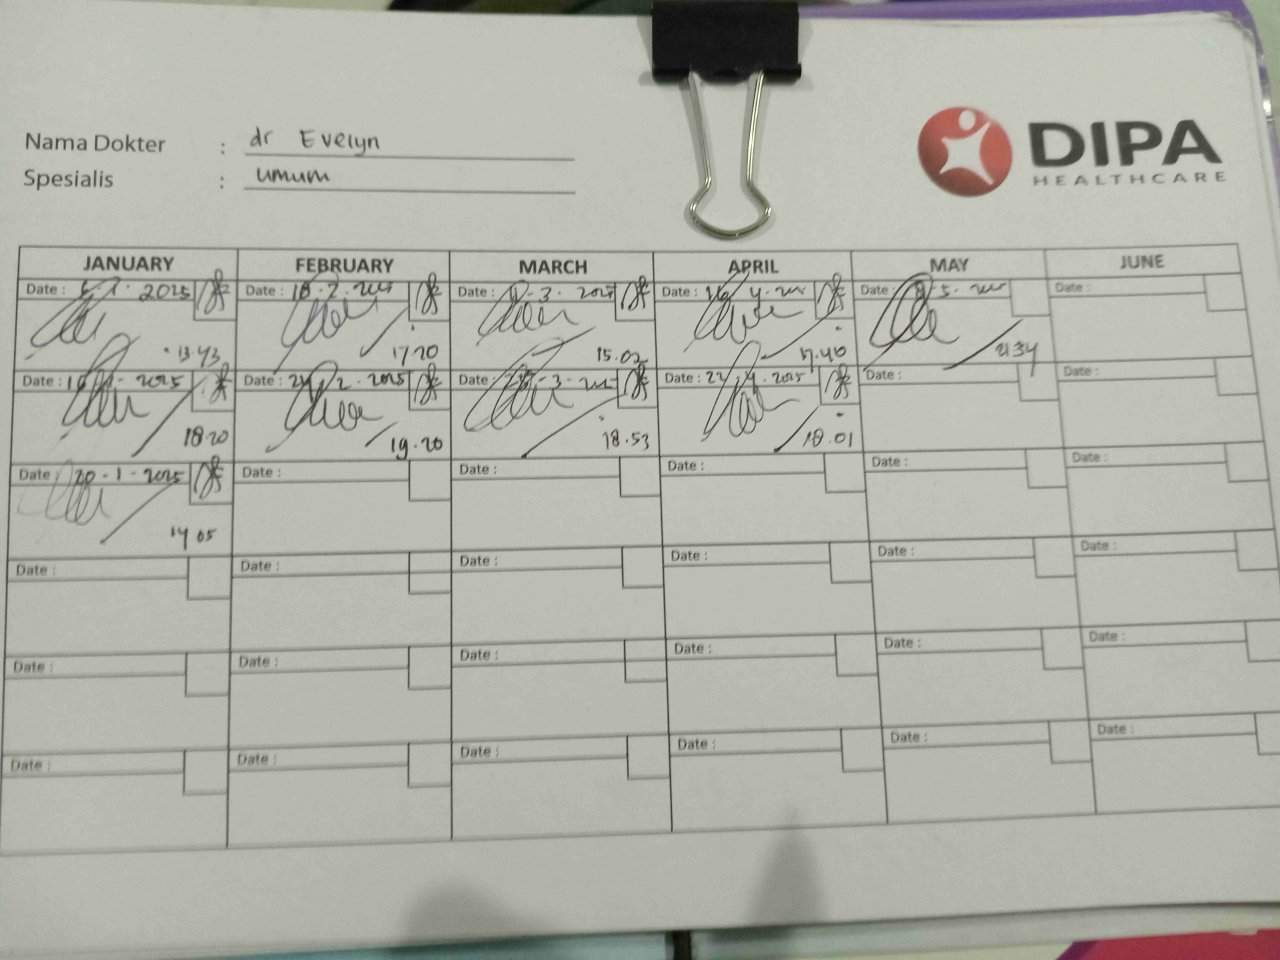 Nama Dokter : dr Evelyn
Spesialis : umum
DIPA
HEALTHCARE
JANUARY FEBRUARY MARCH APRIL MAY JUNE
Date : 2025 Date : 18 · 2 · Date : - 3 · Date : 4 · Date : 5 · Date :
13.43 17.20 15.02 17.40 21 34
Date : - 2025 Date : 2 · 2025 Date : - 3 - Date : 22 · 4 · 2025 Date : Date :
18.20 19.20 18.53 18.01
Date : 20 - 1 - 2025 Date : Date : Date : Date : Date :
14 05
Date : Date : Date : Date : Date : Date :
Date : Date : Date : Date : Date : Date :
Date : Date : Date : Date : Date : Date :